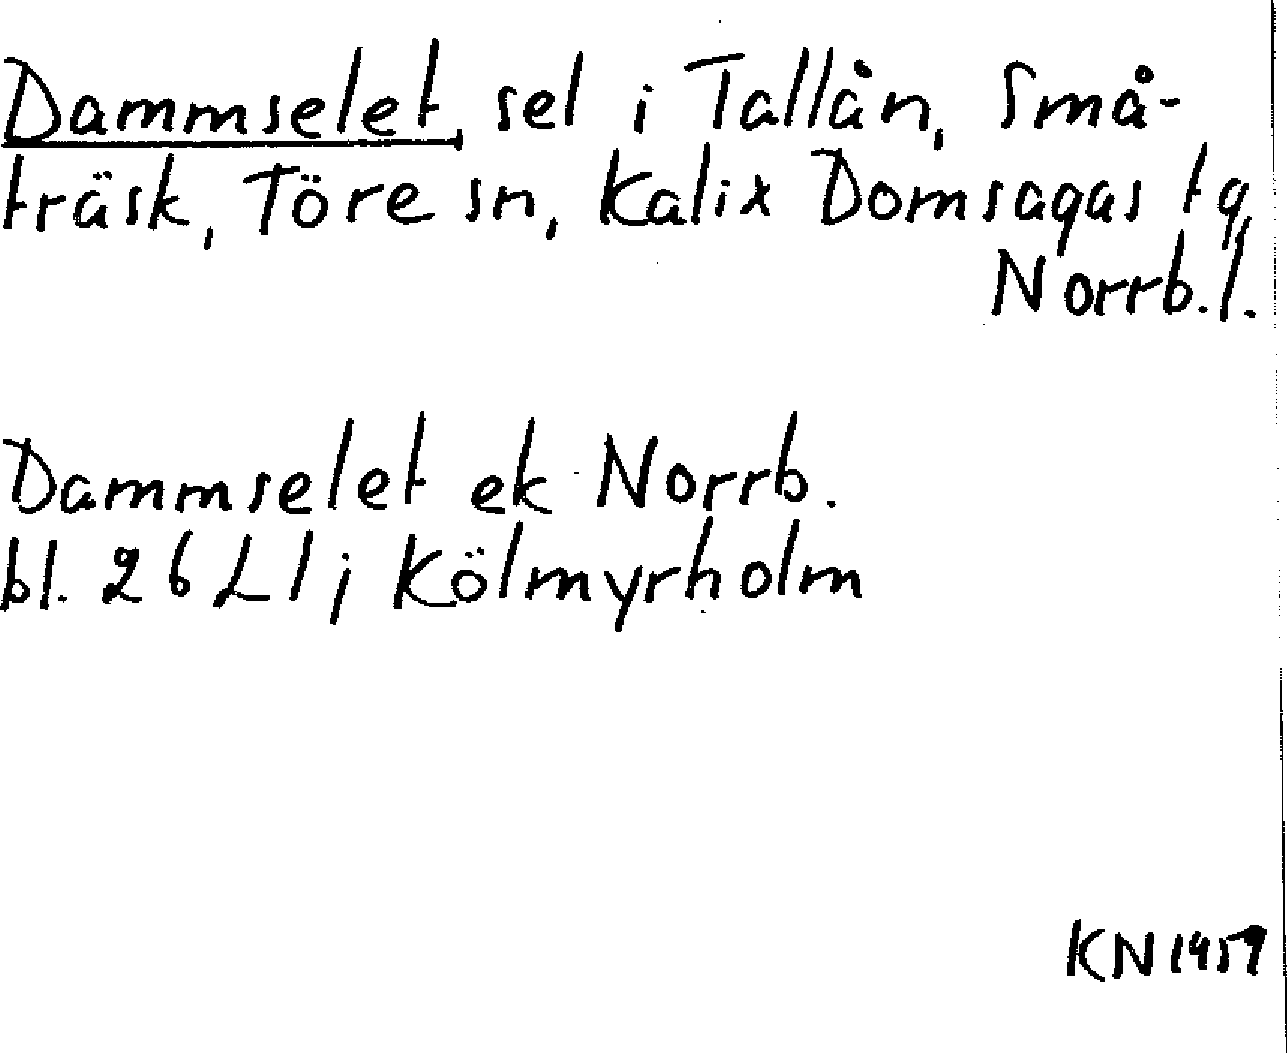 Dammselet, sel i Tallån, Små-
träsk, Töre sn, Kalix Domsagas tg,
Norrb. l.
Dammselet ek Norrb.
bl. 26 L1; Kölmyrholm
KN 1957